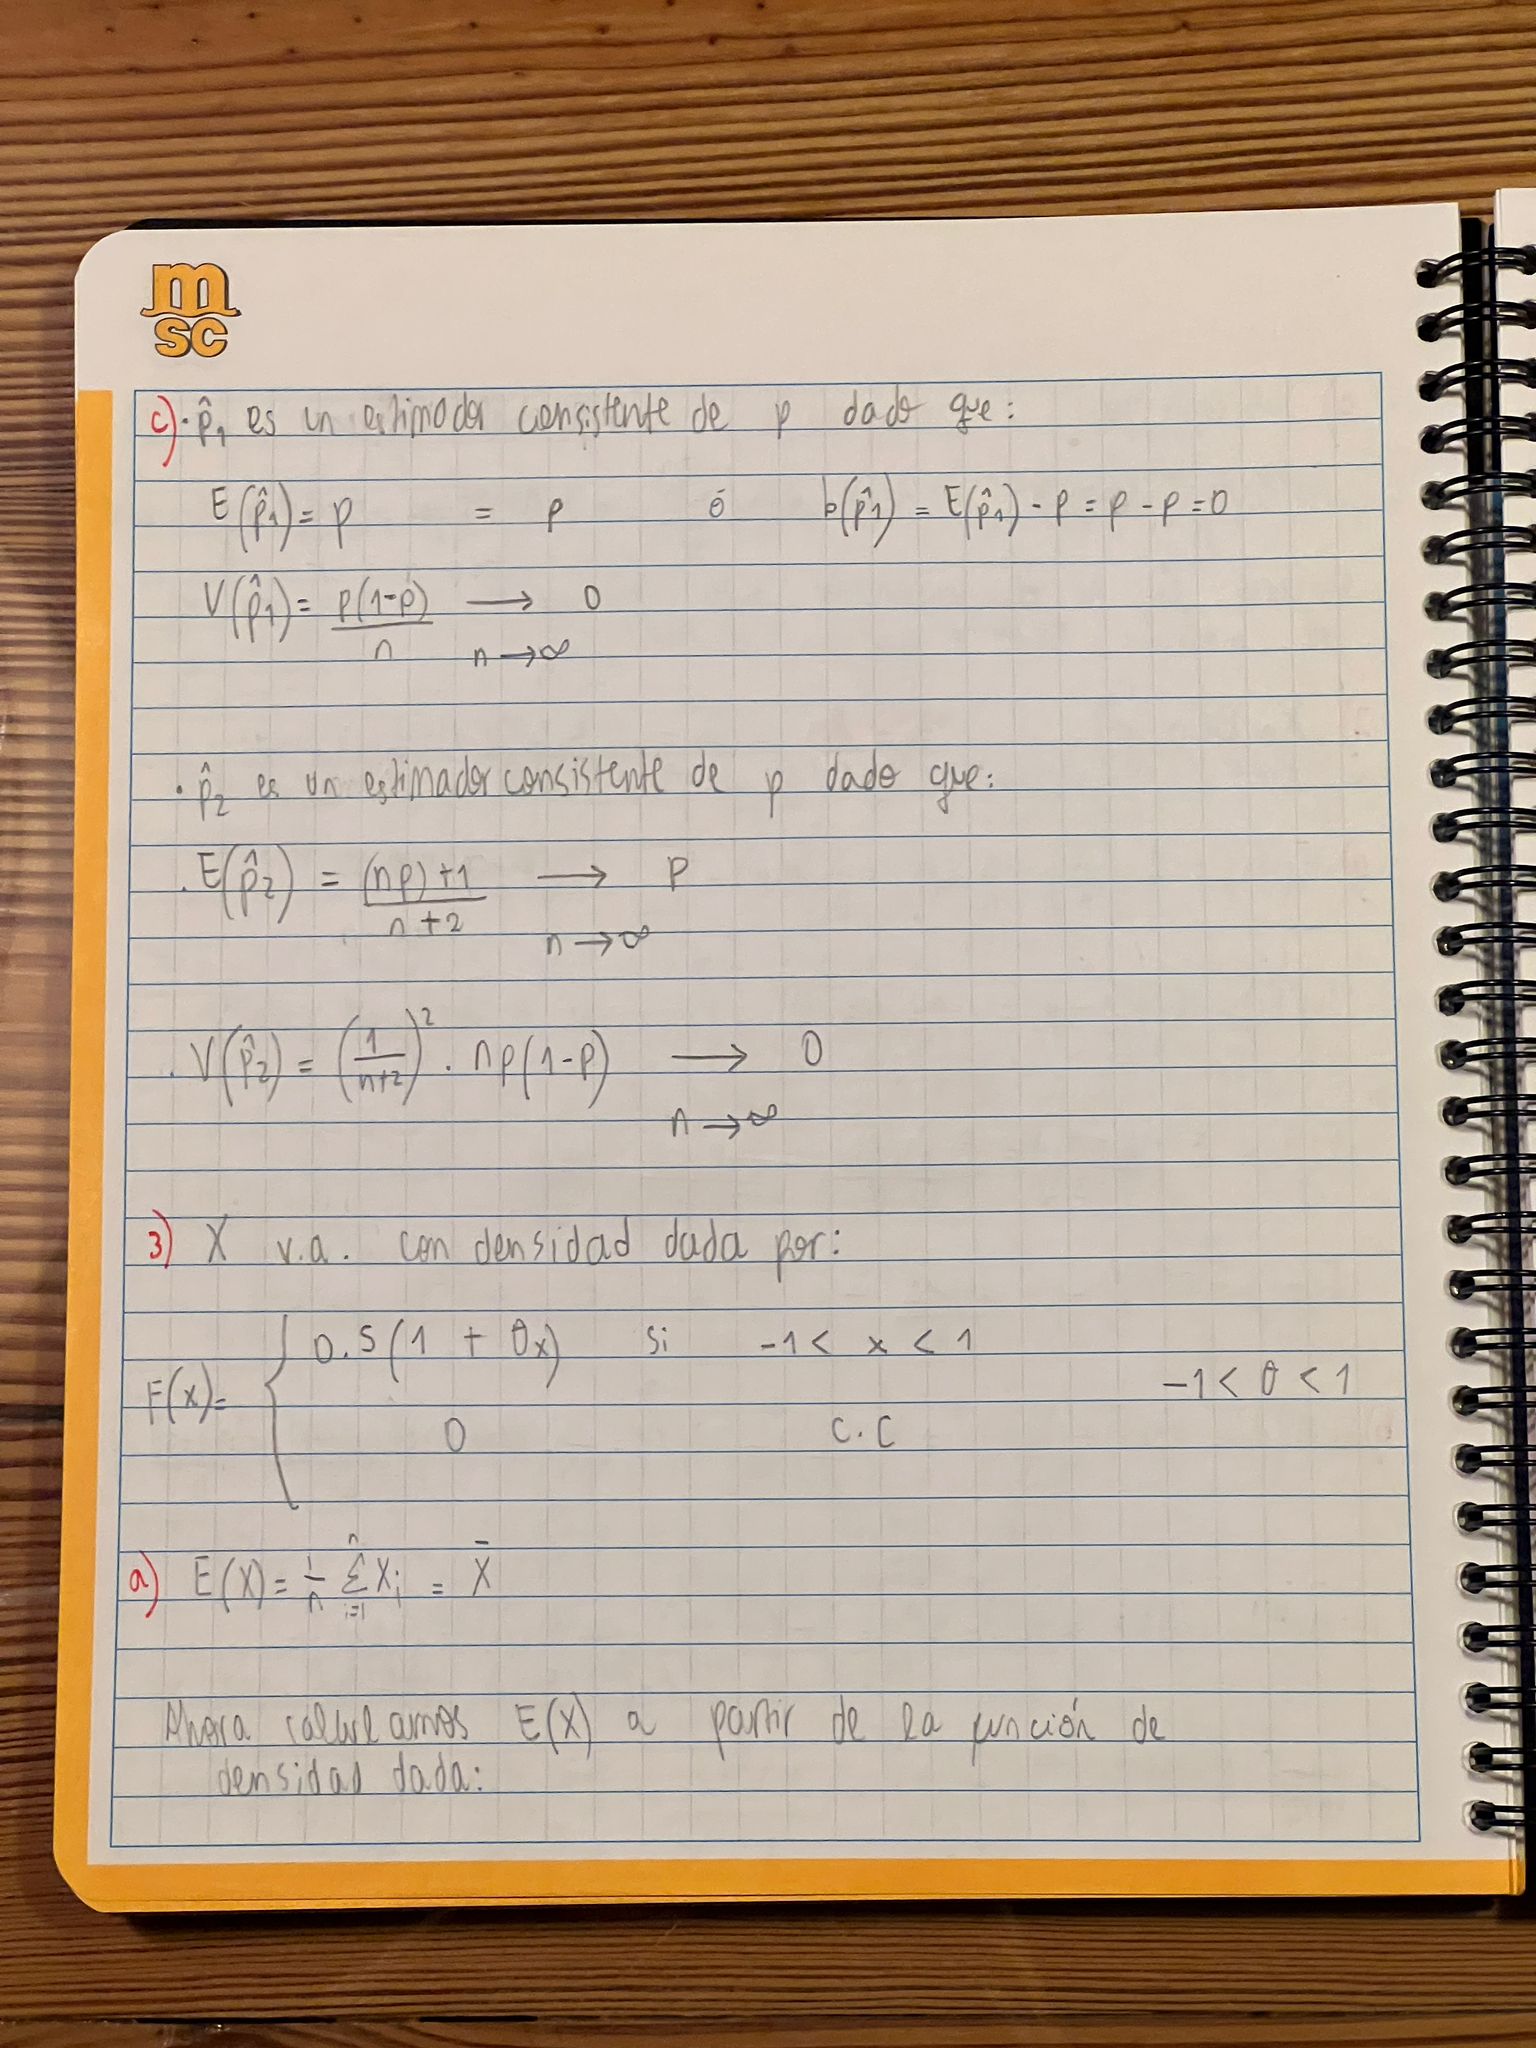 m
sc
c) · p̂₁ es un estimador consistente de p dado que:
E(p̂₁) = p = p ó b(p̂₁) = E(p̂₁) - p = p - p = 0
V(p̂₁) = p(1-p)/n ⟶ 0
n → ∞
· p̂₂ es un estimador consistente de p dado que:
. E(p̂₂) = (np)+1 / n+2 ⟶ p
n → ∞
. V(p̂₂) = (1/n+2)² · np(1-p) ⟶ 0
n → ∞
3) X v.a. con densidad dada por:
F(x) = { 0.5(1 + θx) si -1 < x < 1
-1 < θ < 1
0 c.c
a) E(X) = 1/n Σ_{i=1}^{n} Xi = X̄
Ahora calculamos E(X) a partir de la función de
densidad dada: